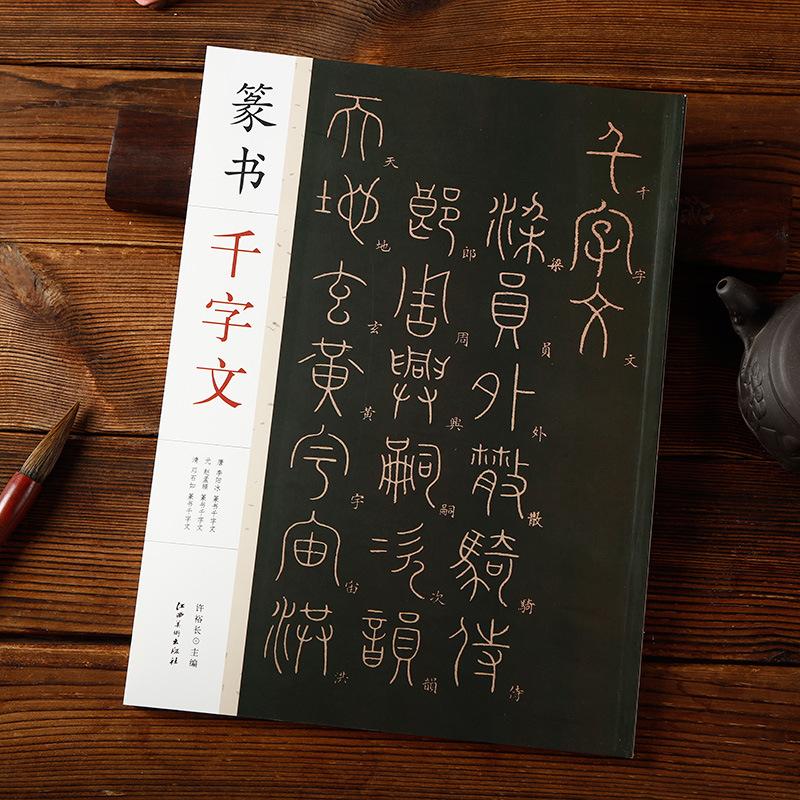 篆书
千字文
唐 李阳冰 篆书千字文
元 赵孟頫 篆书千字文
清 邓石如 篆书千字文
许裕长⊙主编
江西美术出版社
千字文
梁員外散騎侍
郎周興嗣次韻
天地玄黃宇宙洪